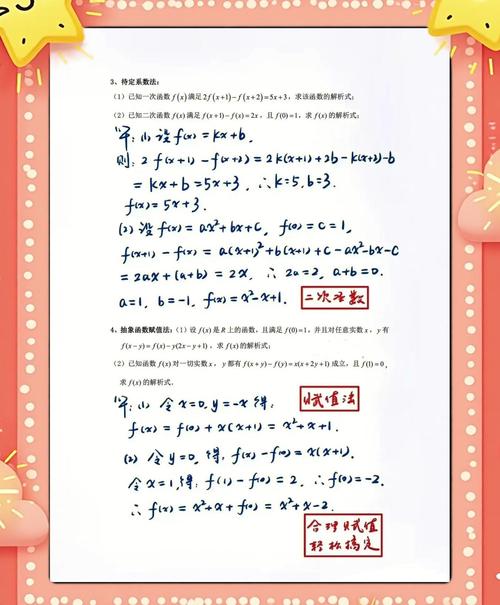 3、待定系数法:
(1) 已知一次函数 f(x) 满足 2f(x+1)−f(x+2)=5x+3，求该函数的解析式;
(2) 已知二次函数 f(x) 满足 f(x+1)−f(x)=2x，且 f(0)=1，求 f(x) 的解析式;
解: (1) 设 f(x)=kx+b,
则: 2f(x+1)−f(x+2)=2k(x+1)+2b−k(x+2)−b
=kx+b=5x+3, ∴k=5, b=3.
f(x)=5x+3.
(2) 设 f(x)=ax²+bx+c, f(0)=c=1,
f(x+1)−f(x)=a(x+1)²+b(x+1)+c−ax²−bx−c
=2ax+(a+b)=2x, ∴2a=2, a+b=0.
a=1, b=−1, f(x)=x²−x+1. 二次函数
4、抽象函数赋值法: (1) 设 f(x) 是 R 上的函数，且满足 f(0)=1，并且对任意实数 x，y 有
f(x−y)=f(x)−y(2x−y+1)，求 f(x) 的解析式;
(2) 已知函数 f(x) 对一切实数 x，y 都有 f(x+y)−f(y)=x(x+2y+1) 成立，且 f(1)=0，
求 f(x) 的解析式.
解: (1) 令 x=0, y=−x 得: 赋值法
f(x)=f(0)+x(x+1)=x²+x+1.
(2) 令 y=0, 得: f(x)−f(0)=x(x+1).
令 x=1, 得: f(1)−f(0)=2, ∴f(0)=−2.
∴f(x)=x²+x+f(0)=x²+x−2.
合理赋值
轻松搞定